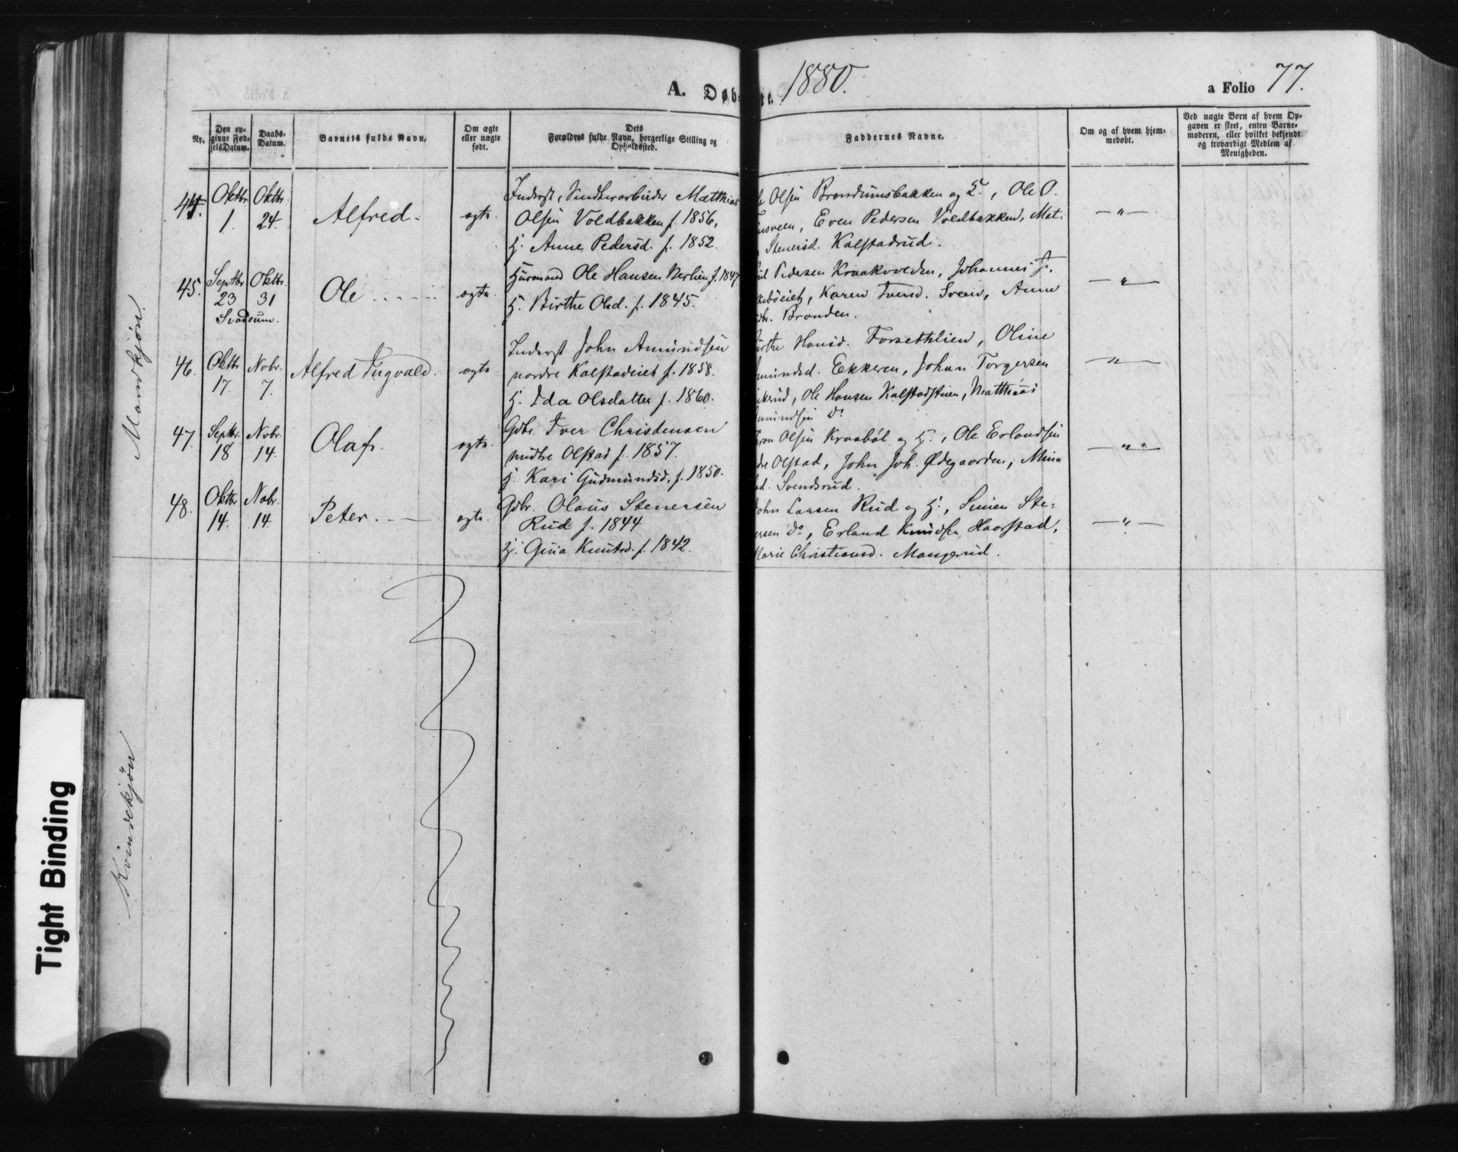 A. Døb
te.
1880.
a Folio 77.
Nr.
Den opgivne FødselsDatum.
Daabs-Datum.
Barnets fulde Navn.
Om ægte eller uægte født.
Dets Forældres fulde Navn, borgerlige Stilling og Opholdssted.
Faddernes Navne.
Om og af hvem hjemmedøbt.
Ved uægte Børn af hvem Opgaven er skeet, enten Barnemoderen, eller hvilket bekjendt og troværdigt Medlem af Menigheden.
Mandkjøn.
44. Oktbr. 1. Oktbr. 24. Alfred. ægte
Inderst, Matthias
Olsen Voldbakken f. 1856,
H. Anne Pedersd. f. 1852.
Olsen Brændumsbakken og H., Ole O.
Even Pedersen Voldbakken, Mat.
Stenersd. Kalstadrud.
— " —
45. Septbr. 23 Oktbr. 31 Ole ægte
Svadsum.
Husmand Ole Hansen f. 1847
H. Birthe Olsd. f. 1845.
Pedersen Kraakvolden, Johannes J.
Karen Iversd. Sveen, Anne
Brænden.
— " —
46. Oktbr. 17. Novbr. 7. Alfred Ingvald. ægte
Inderst John Amundsen
nordre Kalstadeiet f. 1858.
H. Ida Olsdatter f. 1860.
Hansd. Forsethlien, Oline
Ekkeren, Johan Torgersen
Ole Hansen Kalstadstuen, Matthias
Do
— " —
47. Septbr. 18 Novbr. 14. Olaf. ægte
Gdbr. Iver Christensen
midtre Olstad f. 1857.
H. Kari Gudmundsd. f. 1850.
Olsen Kraabøl og H., Ole Erlandsen
Olstad, John Joh. Ødegaarden, Mina
Svendsrud.
— " " —
48. Oktbr. 14. Novbr. 14 Peter. ægte
Gdbr. Olaus Stenersen
Rud f. 1844
H. Gina Knutsd. f. 1842.
John Larsen Rud og H., Simen Ste-
Do, Erland Knudsen Haarstad,
Marie Christiansd. Maugerud.
— " —
Kvindekjøn
Tight Binding